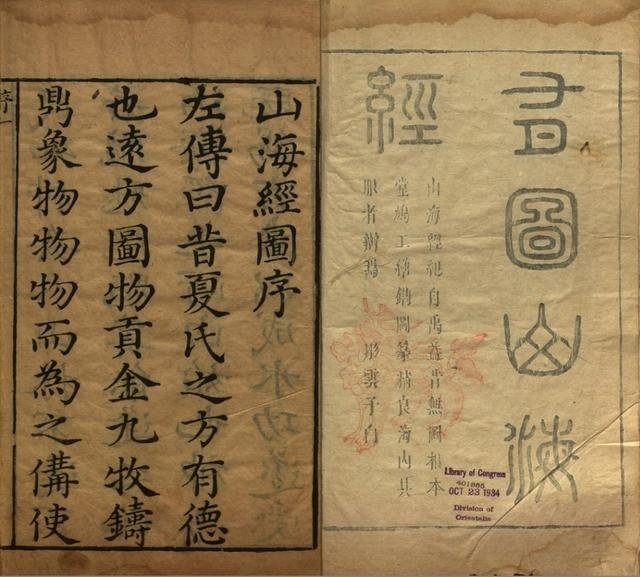 有圖山海
經
山海經紀自禹益昔無圖相本
堂鳩工繪鐫圖篆精良海內具
眼者辨焉 彤雲子白
Library of Congress
401865
OCT 23 1934
Division of
Orientalia
山海經圖序
左傳曰昔夏氏之方有德
也遠方圖物貢金九牧鑄
鼎象物物物而為之備使